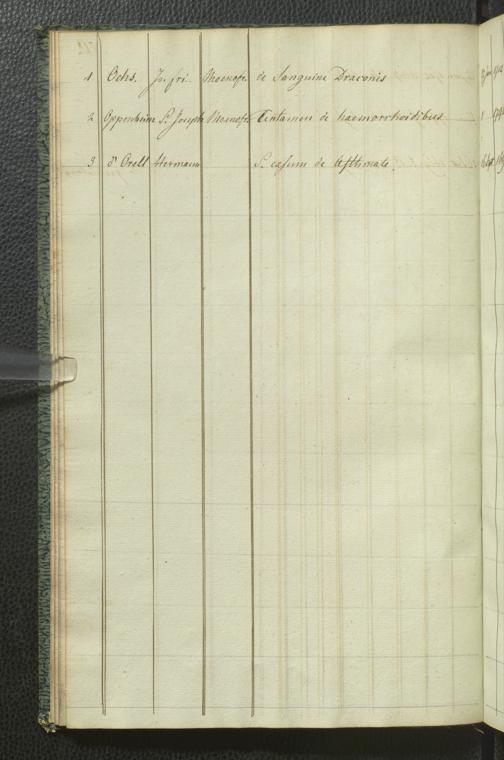 1 Ochs. Jo. fri. Moenofr. de Sanguine Draconis
2 Oppenheim S. Joseph Moenofr. Tentamen de haemorrhoidibus
3 d'Orell Hermann S. casum de Asthmate.